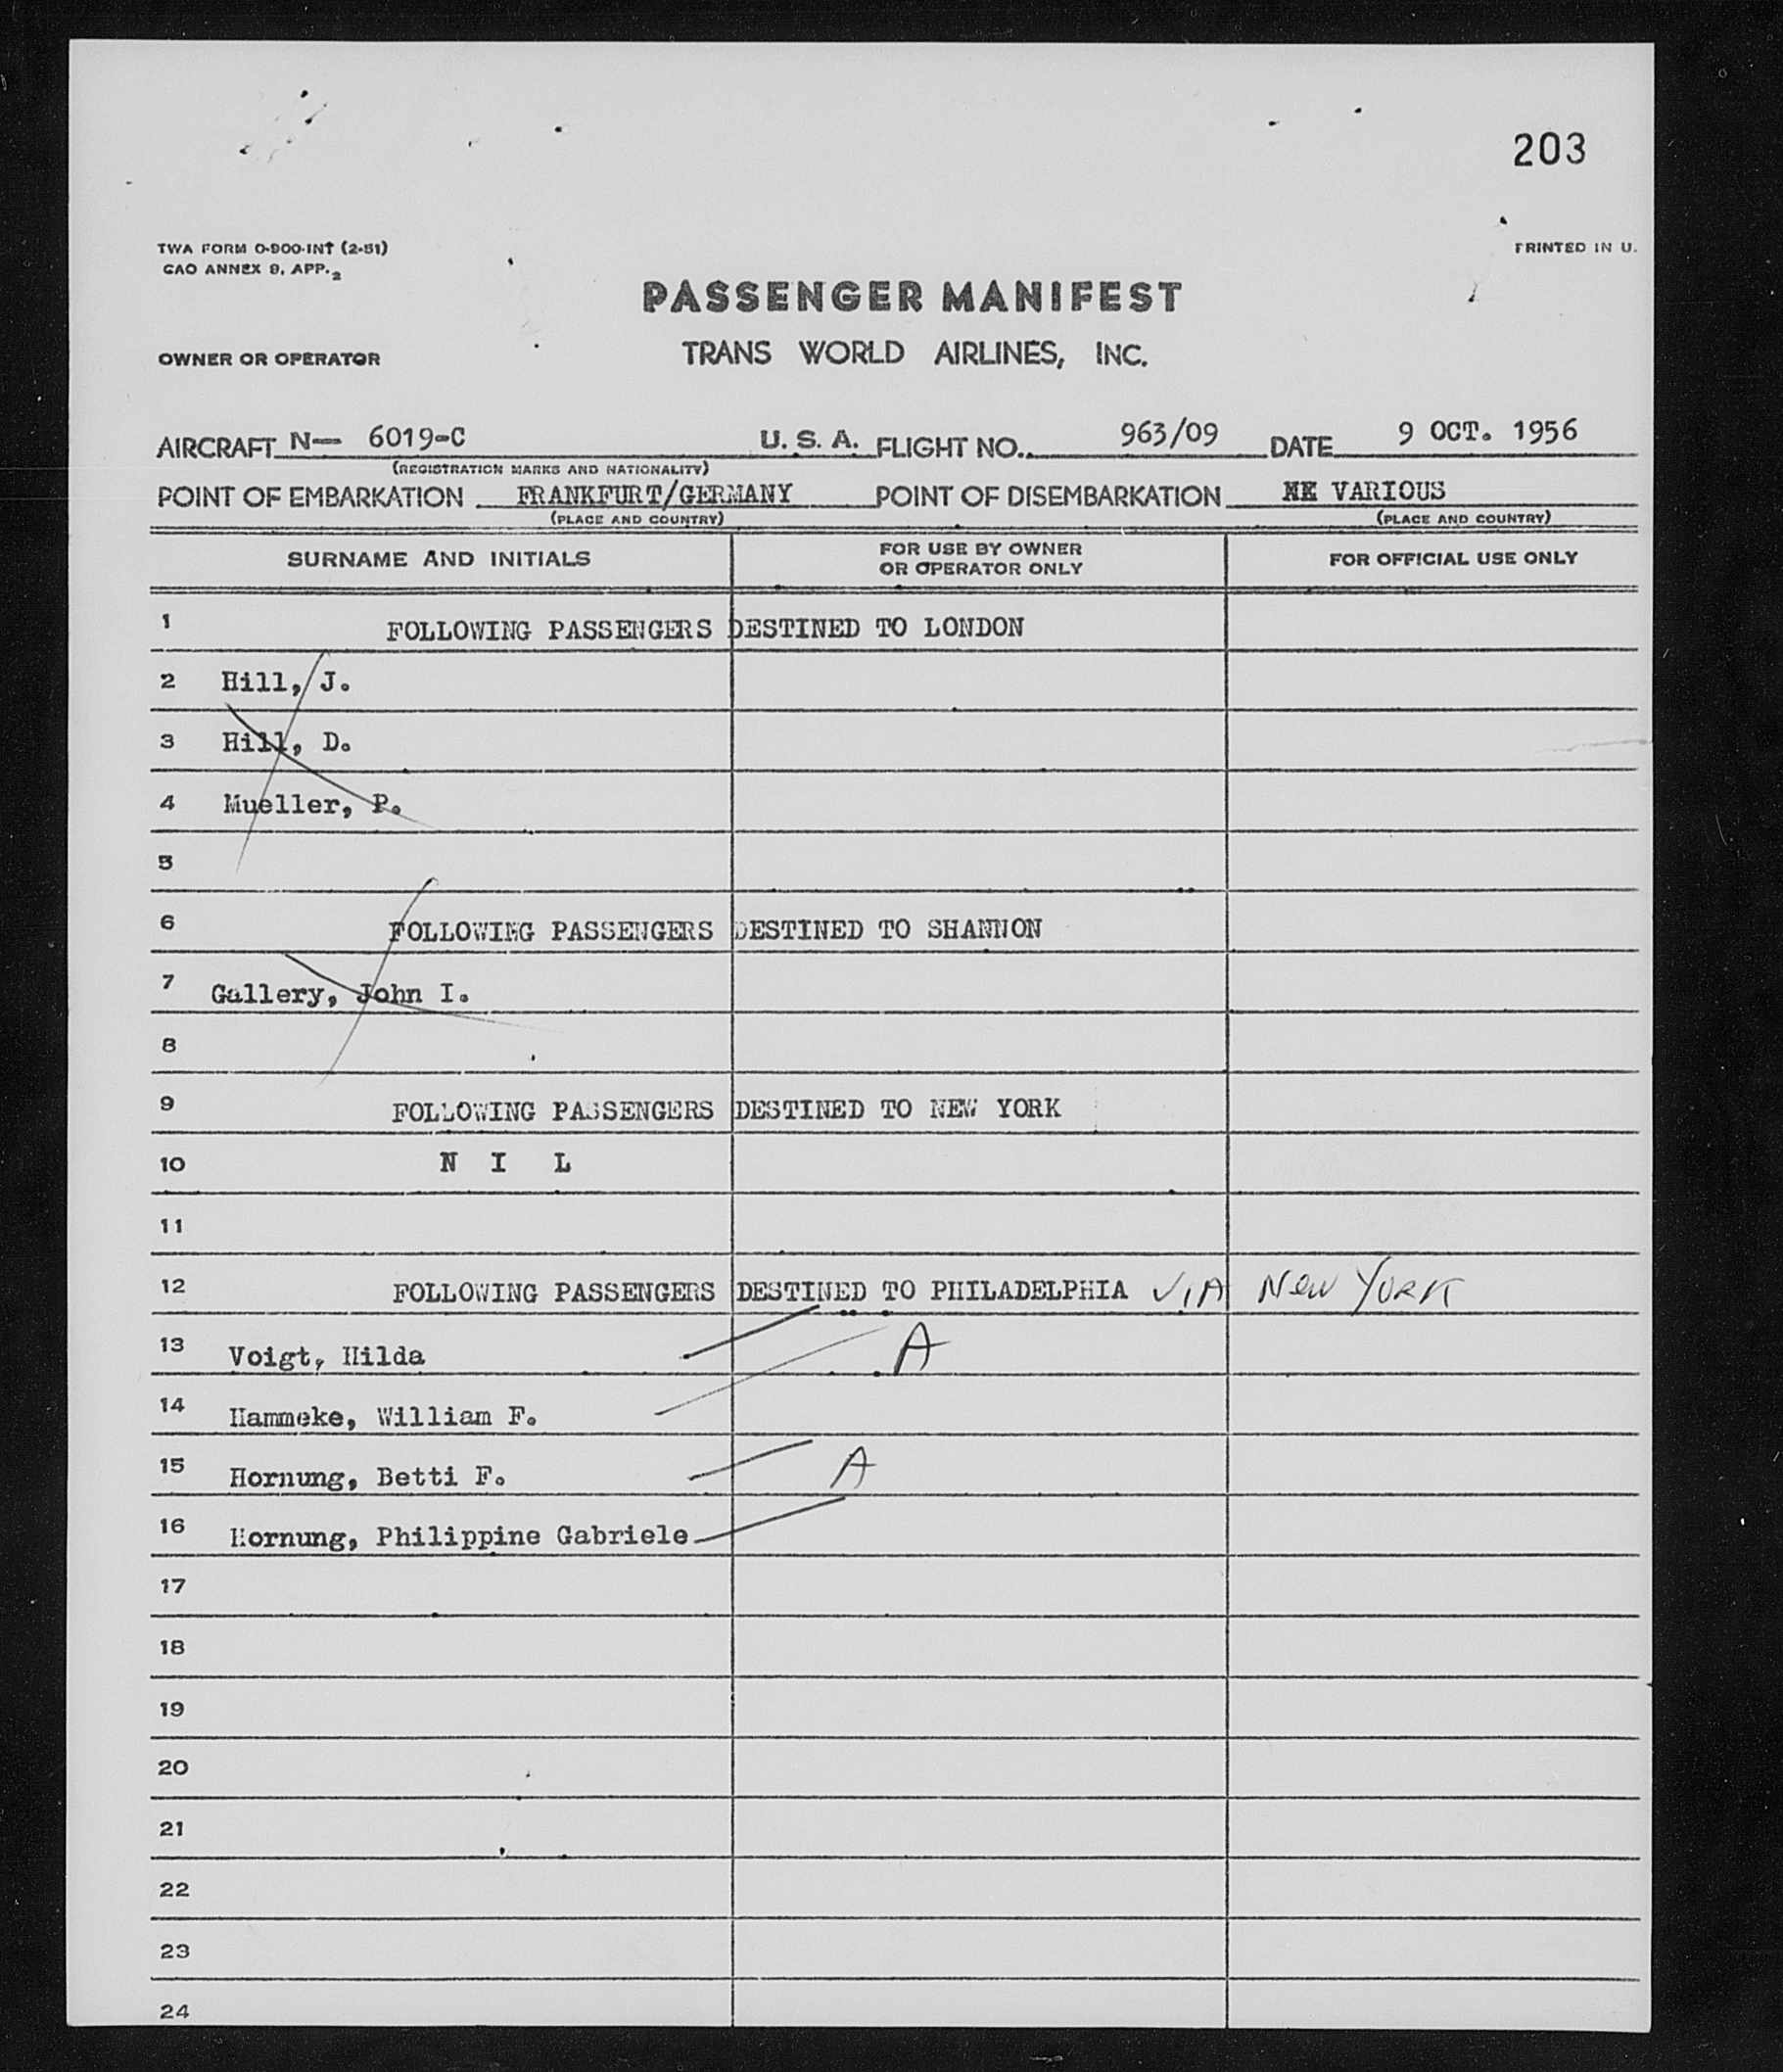 203
TWA FORM O-900-INT (2-51)
CAO ANNEX 9, APP. 2
PRINTED IN U.
PASSENGER MANIFEST
OWNER OR OPERATOR
TRANS WORLD AIRLINES, INC.
AIRCRAFT N— 6019-C U. S. A. FLIGHT NO. 963/09 DATE 9 OCT. 1956
(REGISTRATION MARKS AND NATIONALITY)
POINT OF EMBARKATION FRANKFURT/GERMANY POINT OF DISEMBARKATION VARIOUS
(PLACE AND COUNTRY) (PLACE AND COUNTRY)
SURNAME AND INITIALS FOR USE BY OWNER OR OPERATOR ONLY FOR OFFICIAL USE ONLY
1 FOLLOWING PASSENGERS DESTINED TO LONDON
2 Hill, J.
3 Hill, D.
4 Mueller, P.
5
6 FOLLOWING PASSENGERS DESTINED TO SHANNON
7 Gallery, John I.
8
9 FOLLOWING PASSENGERS DESTINED TO NEW YORK
10 N I L
11
12 FOLLOWING PASSENGERS DESTINED TO PHILADELPHIA VIA New York
13 Voigt, Hilda A
14 Hammeke, William F.
15 Hornung, Betti F. A
16 Hornung, Philippine Gabriele
17
18
19
20
21
22
23
24